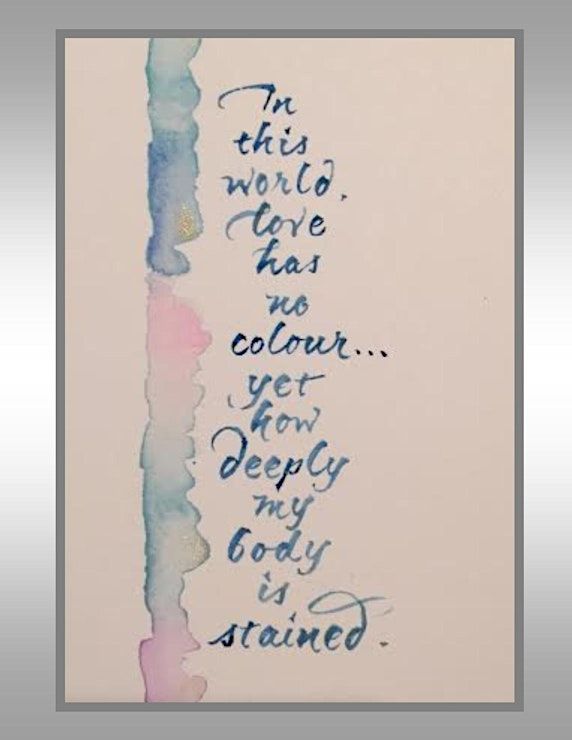 In
this
world,
love
has
no
colour...
yet
how
deeply
my
body
is
stained.